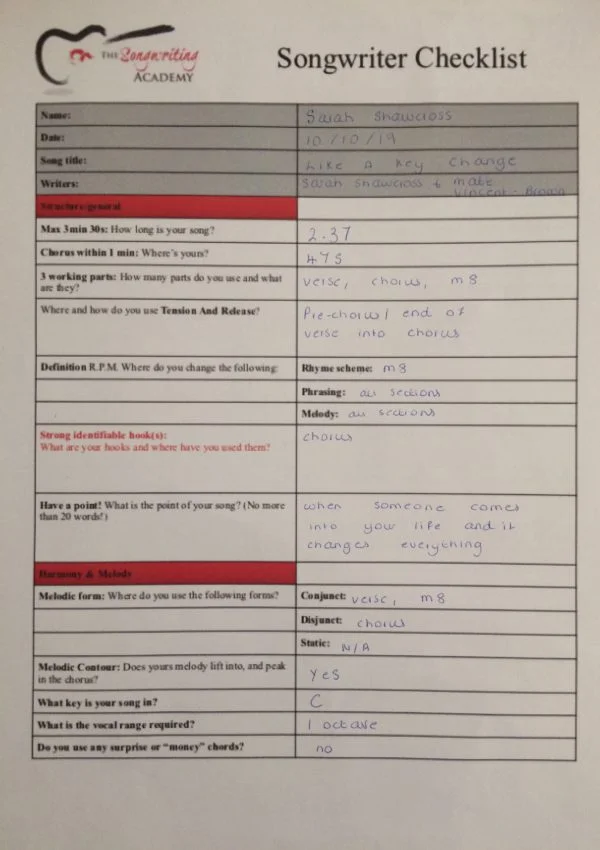 THE Songwriting
ACADEMY
Songwriter Checklist
Name: Sarah Shawcross
Date: 10/10/19
Song title: Like A Key Change
Writers: Sarah Shawcross & Matt
Vincent-Brown
Structure/general
Max 3min 30s: How long is your song? 2.37
Chorus within 1 min: Where's yours? 47s
3 working parts: How many parts do you use and what
are they?
verse, chorus, m8
Where and how do you use Tension And Release?
Pre-chorus/ end of
verse into chorus
Definition R.P.M. Where do you change the following:
Rhyme scheme: m8
Phrasing: all sections
Melody: all sections
Strong identifiable hook(s):
What are your hooks and where have you used them?
chorus
Have a point! What is the point of your song? (No more
than 20 words!)
when someone comes
into your life and it
changes everything
Harmony & Melody
Melodic form: Where do you use the following forms?
Conjunct: verse, m8
Disjunct: chorus
Static: N/A
Melodic Contour: Does yours melody lift into, and peak
in the chorus?
Yes
What key is your song in? C
What is the vocal range required? 1 octave
Do you use any surprise or "money" chords? no